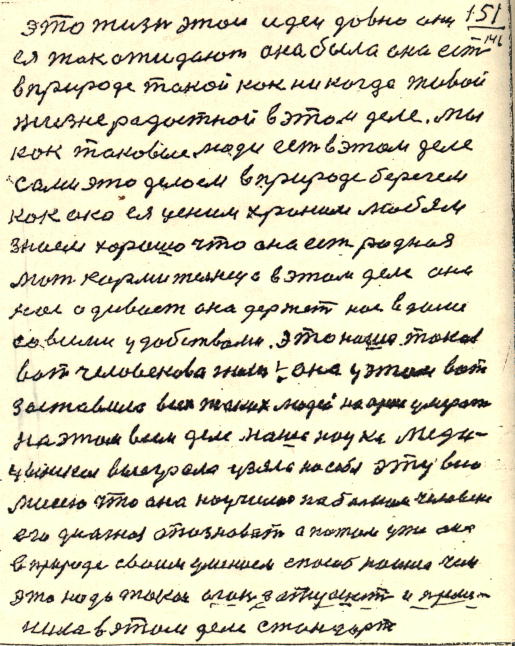 это жизн этои идеи довно они 151
ея так ожидают она была она ест 146
в природе такой как никогда живой
жизнерадостной в этом деле. мы
как таковые люди ест в этом деле
сами это делоем в природе беречем
как око ея ценим храним любям
знаем хорошо что она ест родная
мат кормителница в этом деле она
нас одивает она держет нас в доме
со всими удобствами. это наша такая
вот человекова жизн! она у этом вот
заставила всех таких людей на арии умерат
на этом всем деле наша наука меди-
цынская выеграла узяла на себя эту всю
мисею что она научилас на болном человеке
его диагноз отознават а потом уже она
в природе своим умением способ нашла чем
это надо такая огон затушит и прим-
нила в этом деле стандарт